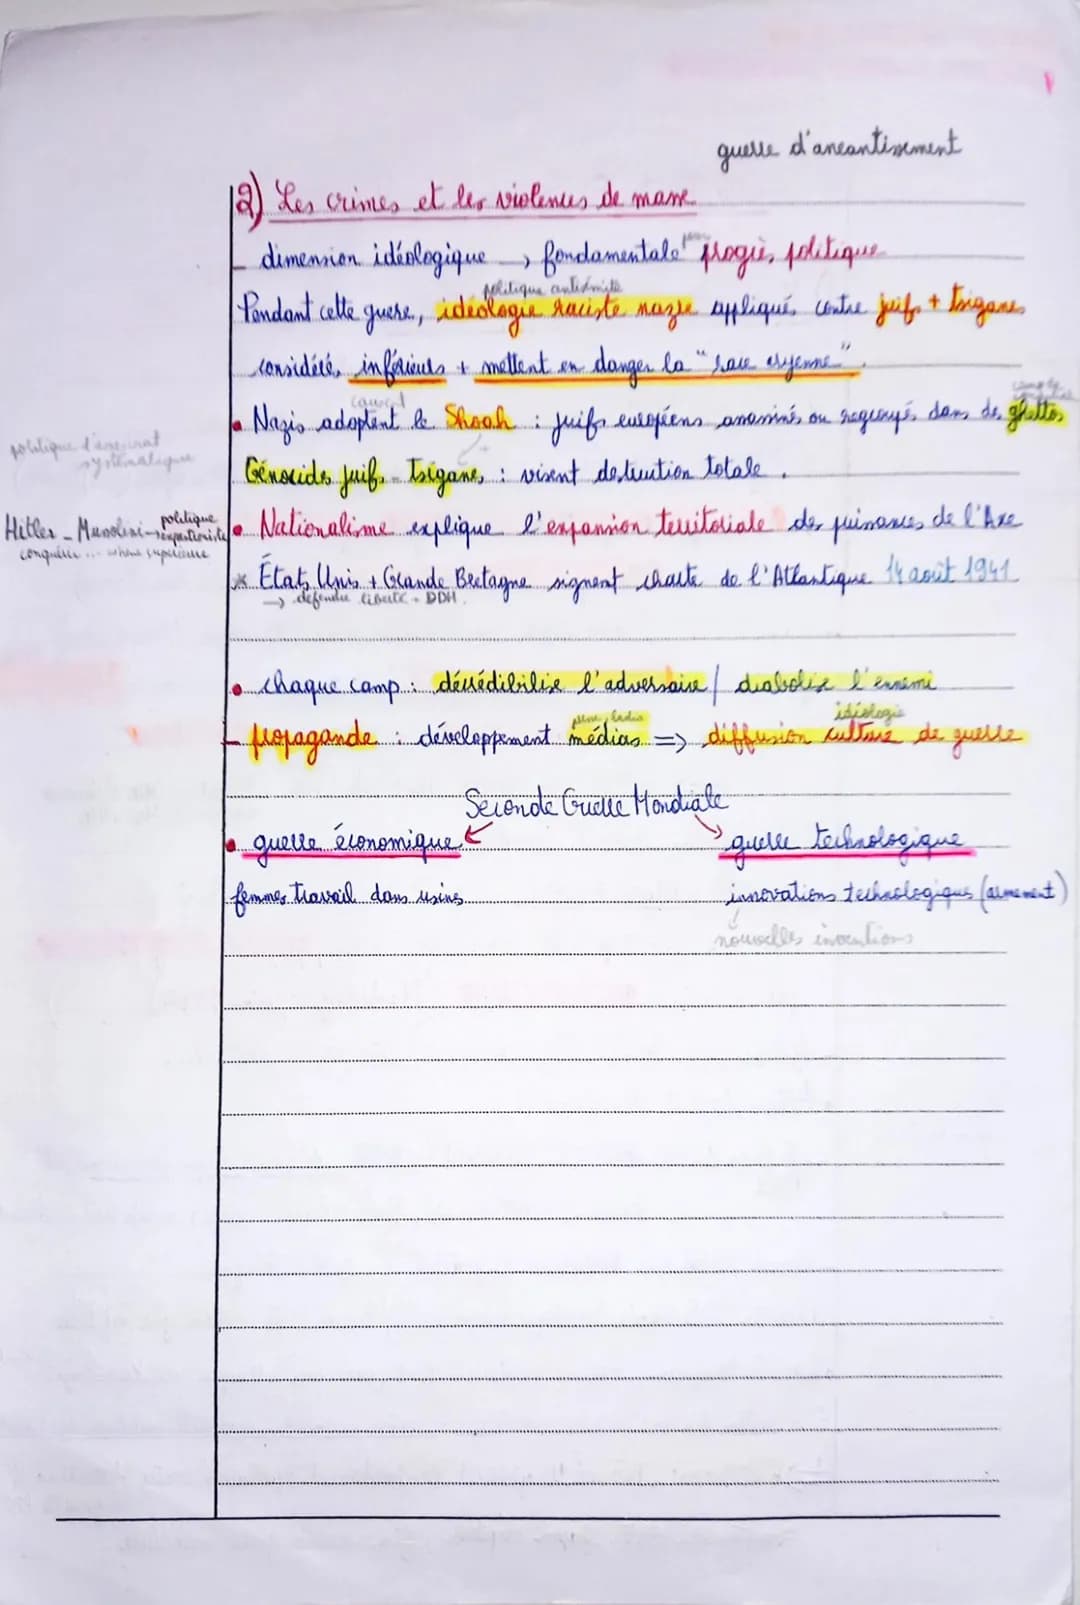 guerre d'aneantissement
2) Les crimes et les violences de masse
- dimension idéologique → fondamentale pour progrès politique
politique antisémite
Pendant cette guerre, idéologie raciste nazie appliqués contre juifs + tsiganes
considérés inférieurs + mettent en danger la "race aryenne".
• Nazis adoptent le Shoah : juifs européens assassinés ou regroupés dans des ghettos
politique d'assassinat
systématique
Génocides juifs - Tsiganes : visent destruction totale.
Hitler - Mussolini → politique expansioniste
• Nationalisme explique l'expansion territoriale des puissances de l'Axe
* États Unis + Grande Bretagne signent charte de l'Atlantique 14 août 1941
→ défendre liberté - DDH
• chaque camp : décrédibilise l'adversaire / diabolise l'ennemi
idéologie
- propagande : développement médias => diffusion culture de guerre
Seconde Guerre Mondiale
• guerre économique
guerre technologique
femmes travail dans usines
innovations technologiques (armement)
nouvelles inventions